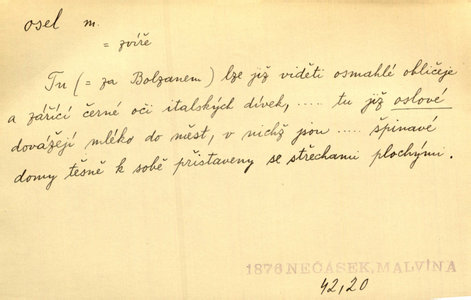 osel m.
= zvíře
Tu (= za Bolzanem) lze již viděti osmahlé obličeje
a zářící černé oči italských dívek, .... tu již oslové
dovážejí mléko do měst, v nichž jsou .... špinavé
domy těsně k sobě přistaveny se střechami plochými.
1876 NEČÁSEK, MALVÍNA
42,20